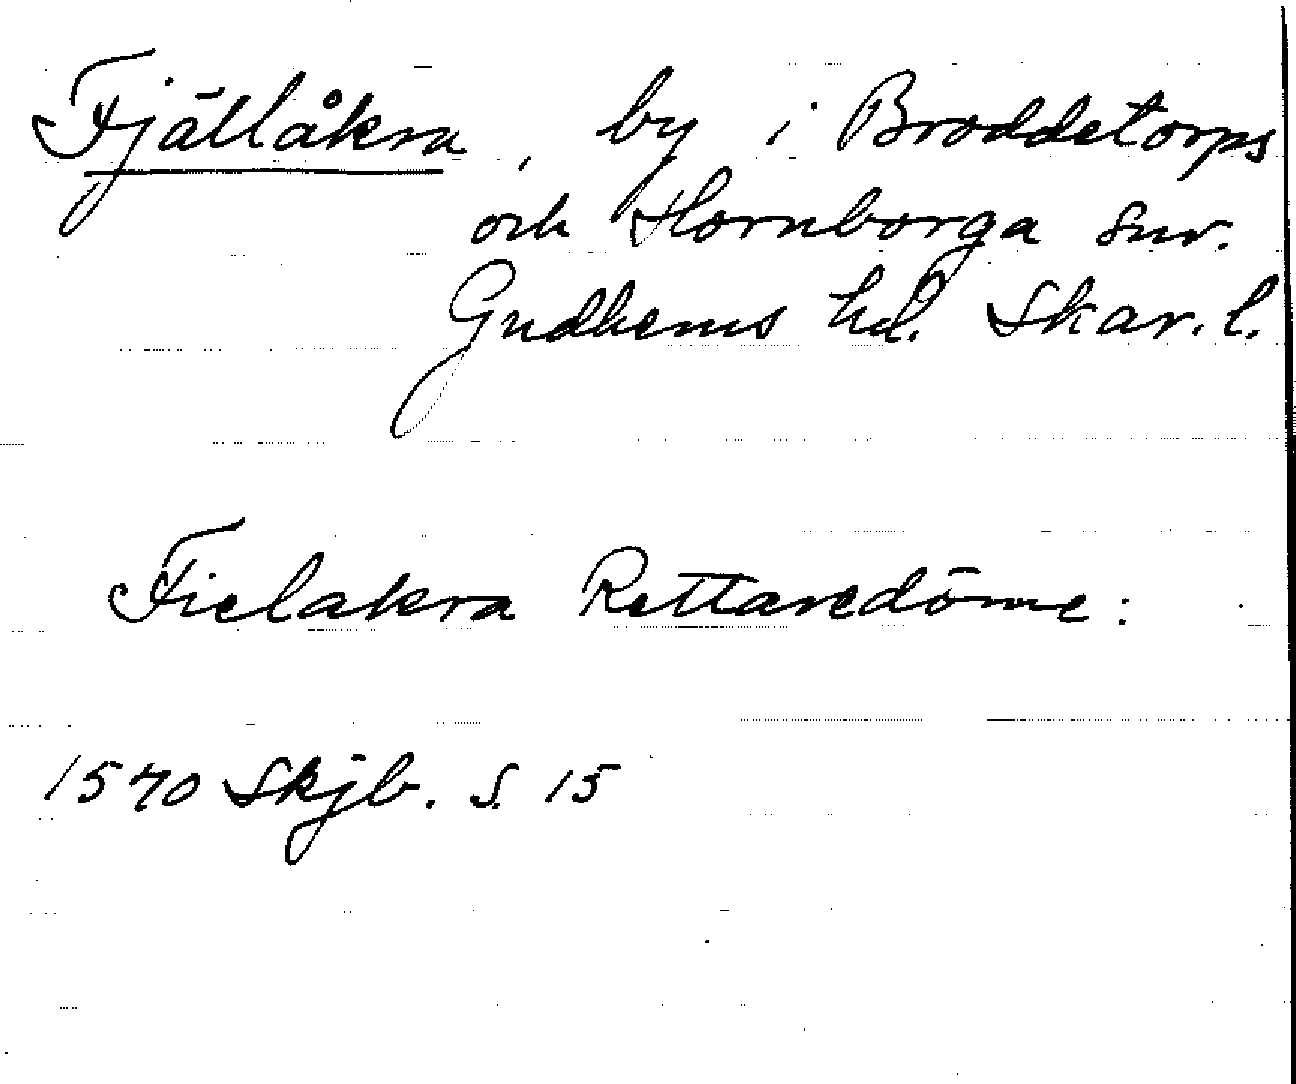 Fjällåkra, by i Broddetorps
och Hornborga snr.
Gudhems hd. Skar. l.
Fielakra Rettaredöme:
1570 Skjb. S. 15